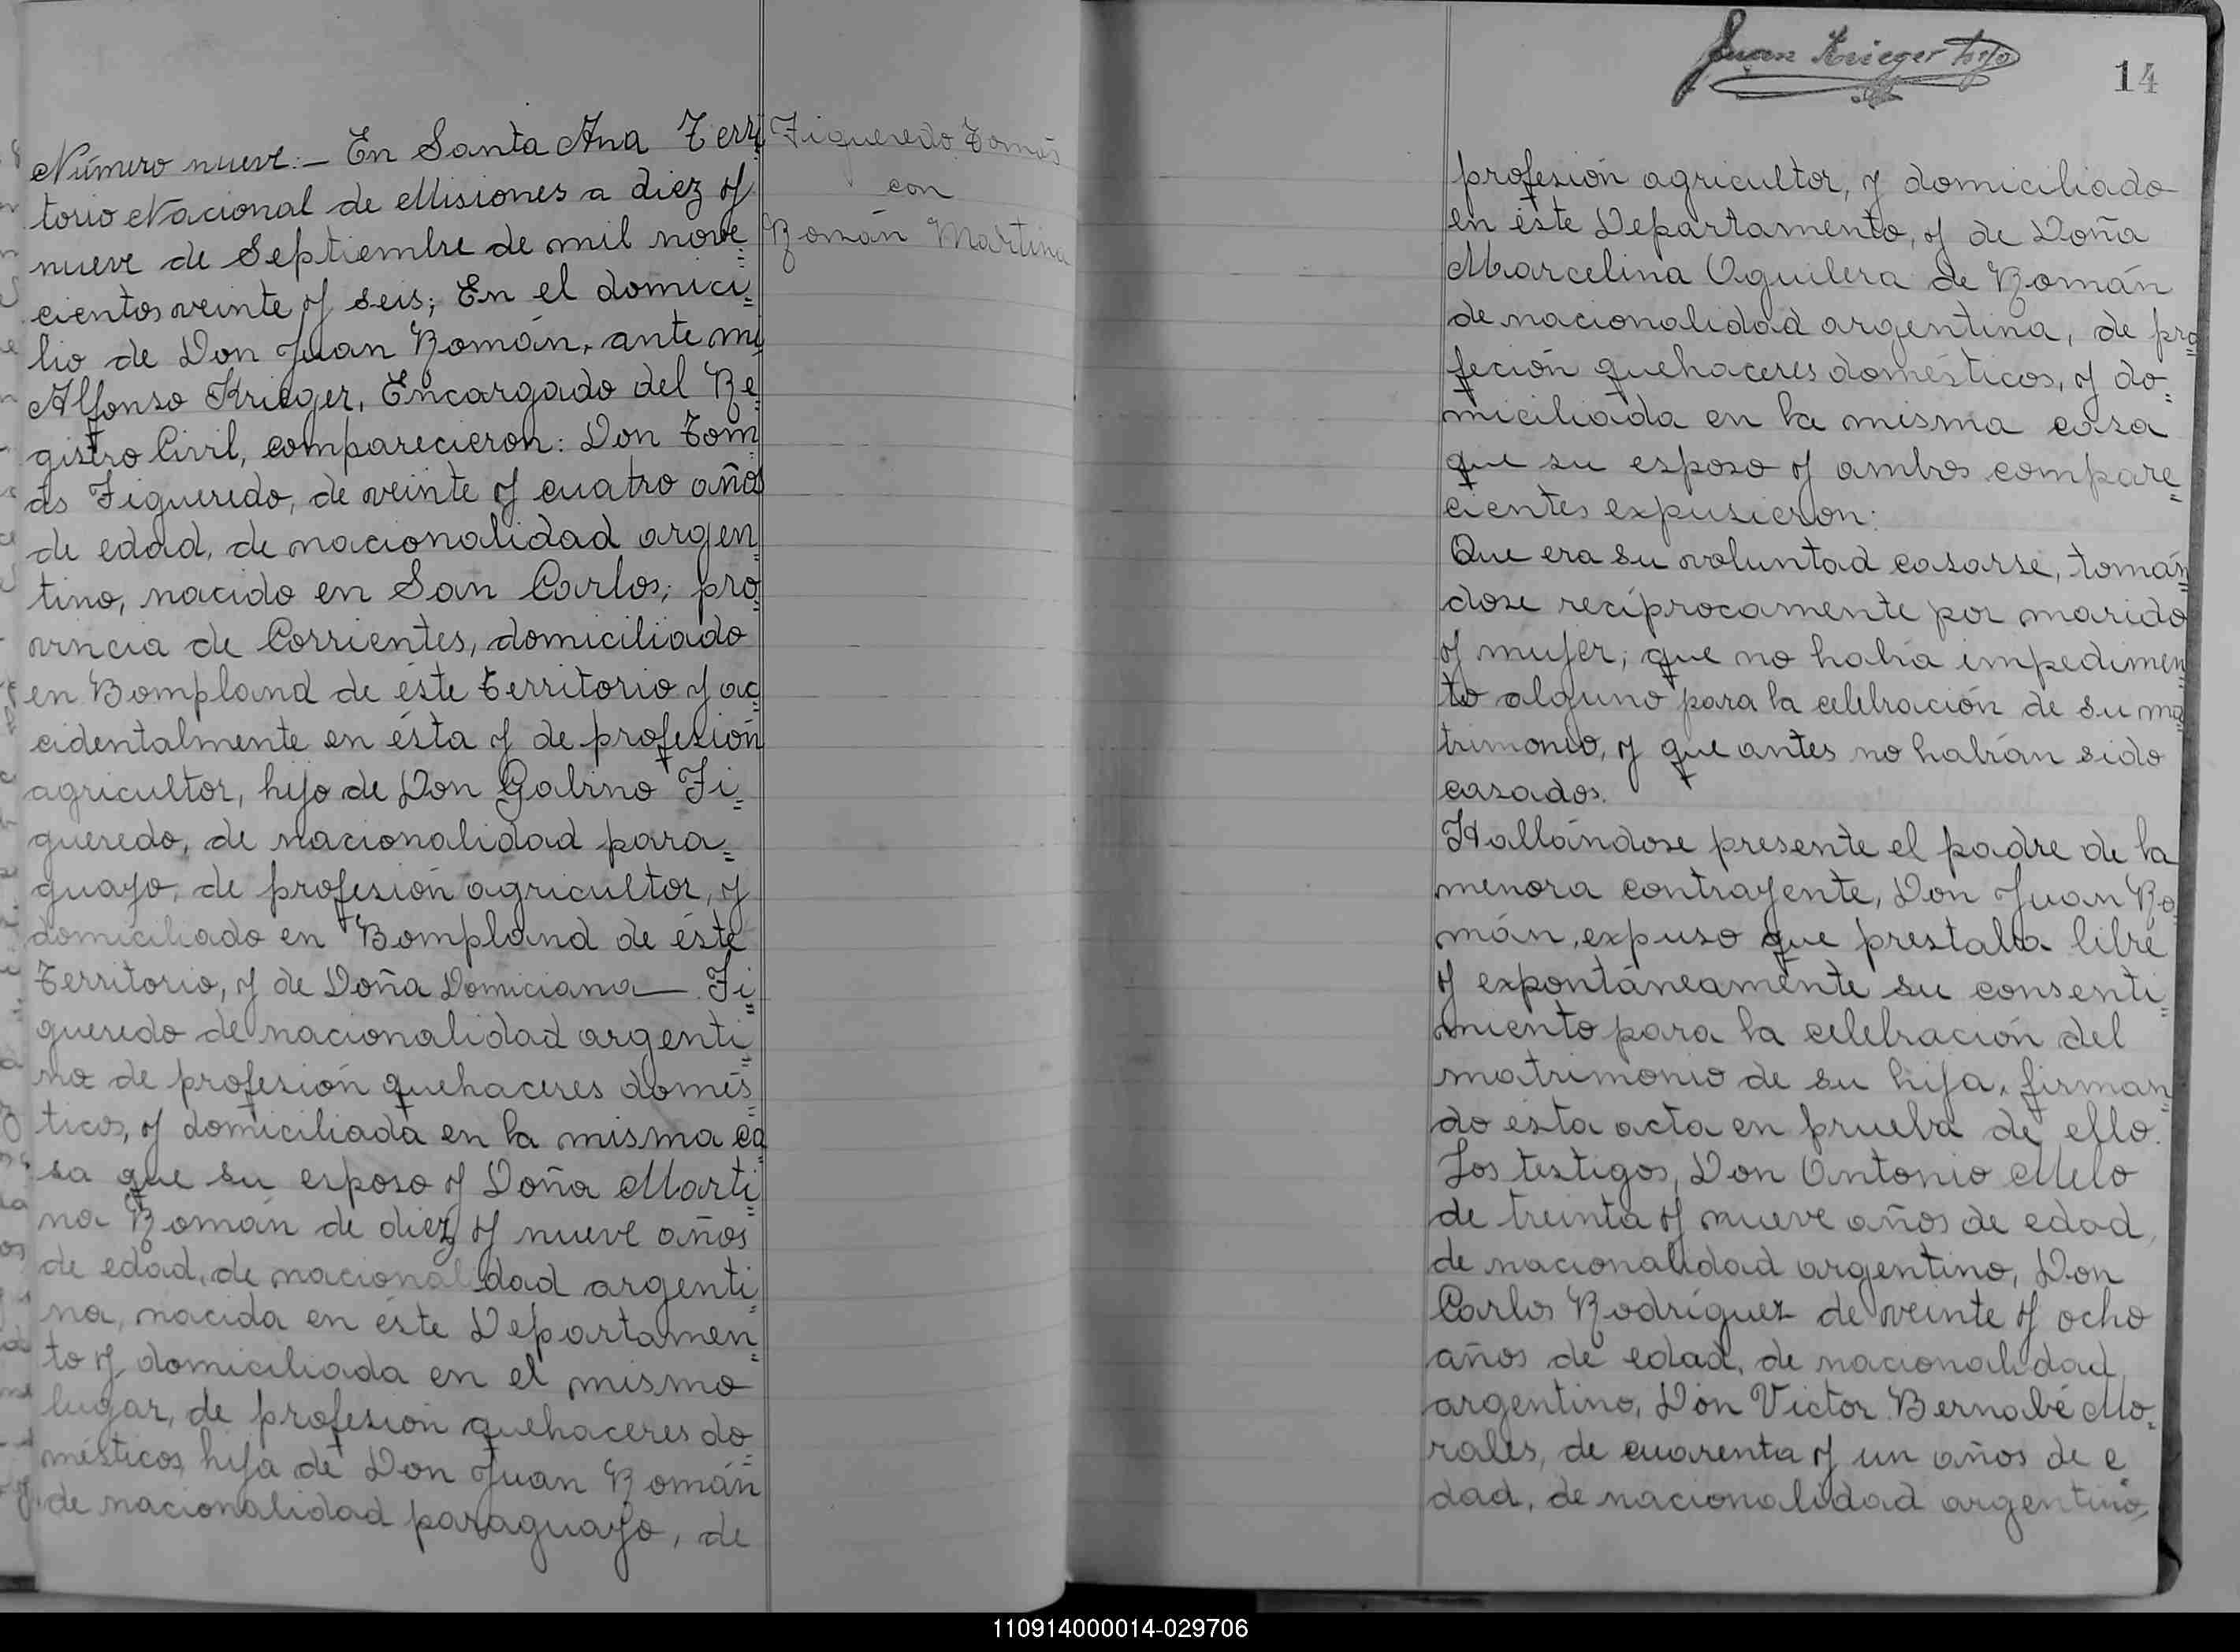 Número nueve:- En Santa Ana Terri
torio Nacional de Misiones a diez y
nueve de Septiembre de mil nove=
cientos veinte y seis; En el domici=
lio de Don Juan Román, ante mi
Alfonso Krieger, Encargado del Re=
gistro Civil, comparecieron: Don Tom=
ás Figueredo, de veinte y cuatro años
de edad, de nacionalidad argen=
tino, nacido en San Carlos; pro=
vincia de Corrientes, domiciliado
en Bompland de éste Territorio y ac=
cidentalmente en ésta y de profesión
agricultor, hijo de Don Gabino Fi=
gueredo, de nacionalidad para=
guayo, de profesión agricultor, y
domiciliado en Bompland de éste
Territorio, y de Doña Domiciana — Fi=
gueredo de nacionalidad argenti=
na de profesión quehaceres domés=
ticos, y domiciliada en la misma ca=
sa que su esposo y Doña Marti=
na Román de diez y nueve años
de edad, de nacionalidad argenti=
na, nacida en éste Departamen=
to y domiciliada en el mismo
lugar, de profesión quehaceres do=
mésticos, hija de Don Juan Román
de nacionalidad paraguayo, de
Figueredo Tomás
con
Román Martina
Juan Krieger
14
profesión agricultor, y domiciliado
en éste Departamento, y de Doña
Marcelina Aguilera de Román
de nacionalidad argentina, de pro=
feción quehaceres domésticos, y do=
miciliada en la misma casa
que su esposo y ambos compare=
cientes expusieron:
Que era su voluntad casarse, tomán=
dose recíprocamente por marido
y mujer; que no había impedimen=
to alguno para la celebración de su ma=
trimonio, y que antes no habían sido
casados.
Hallándose presente el padre de la
menora contrayente, Don Juan Ro=
mán, expuso que prestaba libre
y expontáneamente su consenti=
miento para la celebración del
matrimonio de su hija, firman=
do ésta acta en prueba de ello.
Los testigos, Don Antonio Melo
de treinta y nueve años de edad,
de nacionalidad argentino, Don
Carlos Rodríguez de veinte y ocho
años de edad, de nacionalidad
argentino, Don Victor Bernabé Mo=
rales, de cuarenta y un años de e=
dad, de nacionalidad argentino,
110914000014-029706